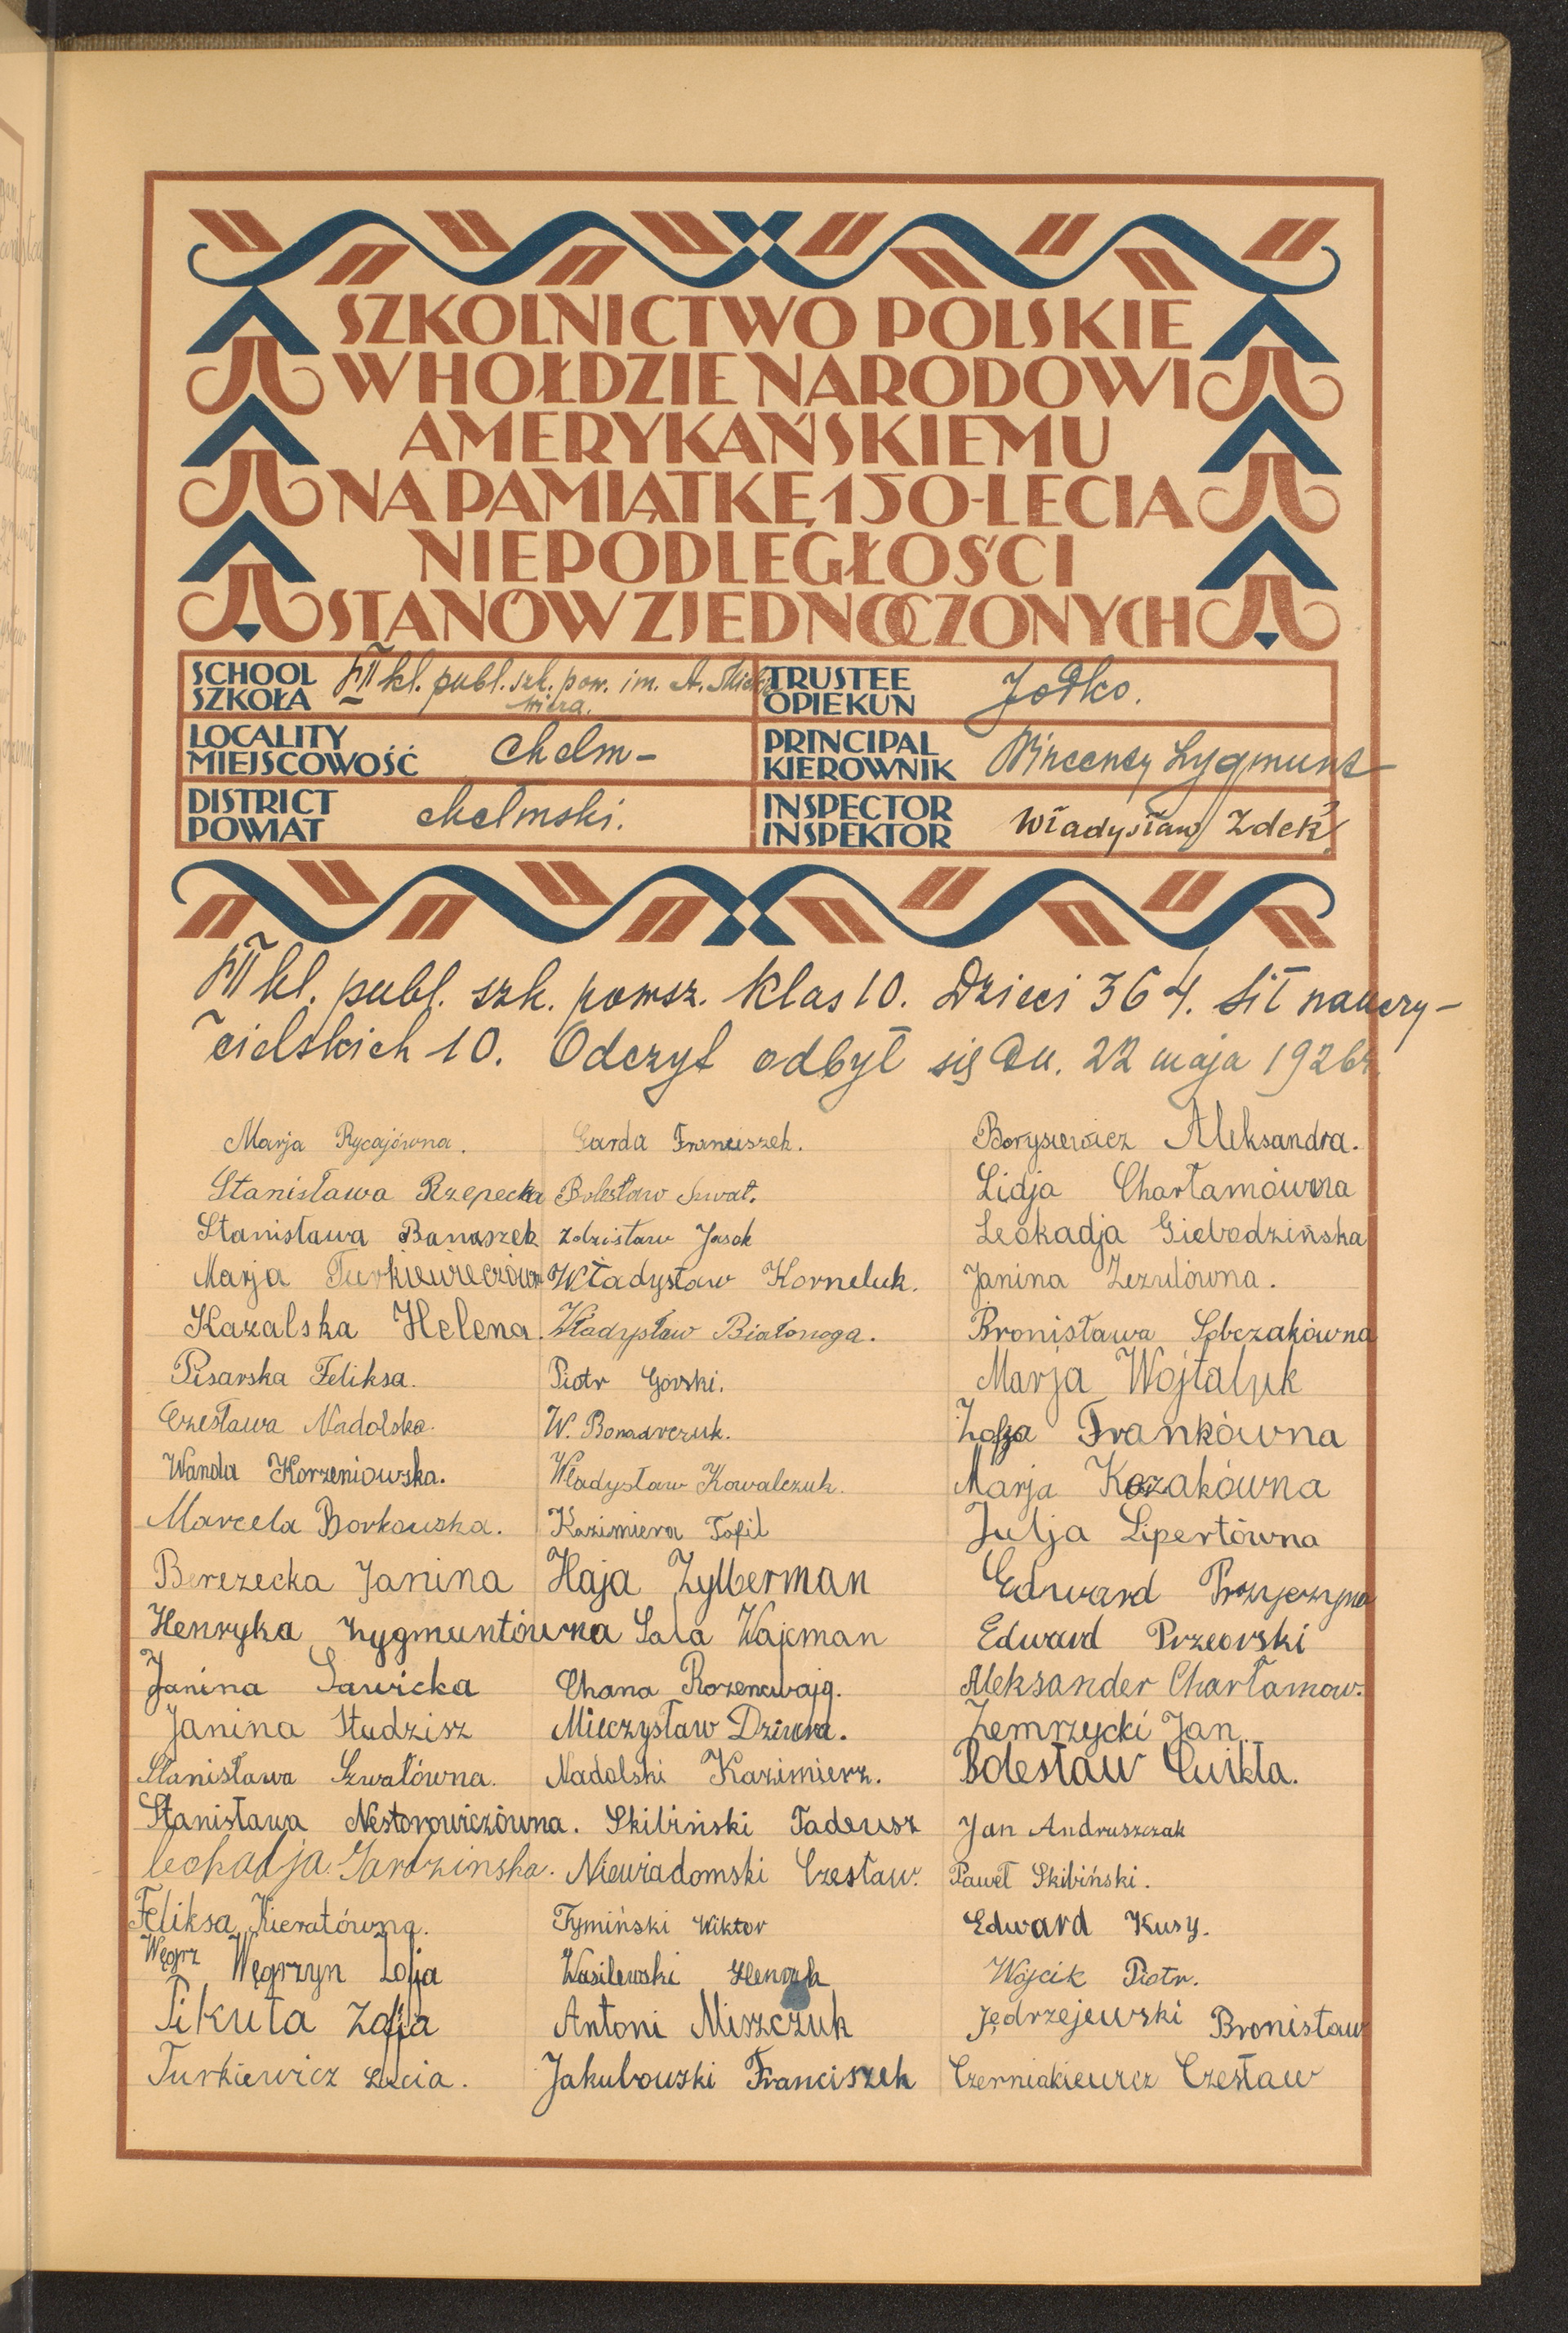 SZKOLNICTWO POLSKIE
W HOŁDZIE NARODOWI
AMERYKAŃSKIEMU
NA PAMIĄTKĘ 150-LECIA
NIEPODLEGŁOŚCI
STANÓW ZJEDNOCZONYCH
SCHOOL
SZKOŁA
VII kl. publ. szk. pow. im. A. Mickie
wicza.
TRUSTEE
OPIEKUN
Jodko.
LOCALITY
MIEJSCOWOŚĆ
Chełm-
PRINCIPAL
KIEROWNIK
Wincenty Zygmunt
DISTRICT
POWIAT
chełmski.
INSPECTOR
INSPEKTOR
Władysław Zdek
VII kl. publ. szk. powsz. Klas 10. Dzieci 364. Sił nauczy-
cielskich 10. Odczyt odbył się dn. 22 maja 1926r.
Marja Rycajówna.
Stanisława Rzepecka
Stanisława Banaszek
Marja Turkiewiczówn
Kazalska Helena.
Pisarska Feliksa.
Czesława Nadolska.
Wanda Korzeniowska.
Marcela Borkowska.
Berezecka Janina
Henryka Zygmuntówna
Janina Sawicka
Janina Studzisz
Stanisława Szwatówna.
Stanisława Nestorowiczówna.
Leokadja Jardzinska.
Feliksa Kieratówna.
Węgrz Węgrzyn Zofja
Pikuta Zofja
Turkiewicz Łucia.
Garda Franciszek.
Bolesław Suwał.
Zdzisław Jasak
Władysław Korneluk.
Władysław Białonoga.
Piotr Górski.
W. Bondarczuk.
Władysław Kowalczuk.
Kazimiera Tofil
Haja Zylberman
Sala Wajcman
Chana Rozencwajg.
Mieczysław Dziura.
Nadolski Kazimierz.
Skibiński Tadeusz
Niewiadomski Czesław.
Tymiński Wiktor
Wasilewski Henryk
Antoni Miszczuk
Jakubowski Franciszek
Borysiewicz Aleksandra.
Lidja Charłamówna
Leokadja Giebodzińska
Janina Zezulówna.
Bronisława Sobczakówna
Marja Wojtaluk
Zofja Frankówna
Marja Kozakówna
Julja Lipertówna
Edward Przyczyna
Edward Przeorski
Aleksander Charłamow.
Zemrzycki Jan
Bolesław Ćwikła.
Jan Andruszczak
Paweł Skibiński.
Edward Kusy.
Wójcik Piotr.
Jędrzejewski Bronisław
Czerniakiewicz Czesław